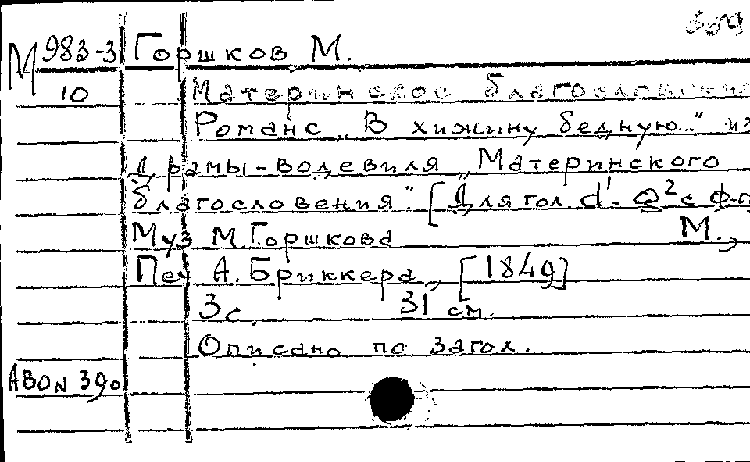 М 983-3 Горшков М.
10 Материнское благословение
Романс „В хижину бедную.." из
драмы-водевиля „Материнского
благословения". [Для гол. d¹-a² с ф-п
Муз М Горшкова М.,
Печ А. Бриккера, [1849]
3 с. 31 см.
Описано по загол.
АВОN 390